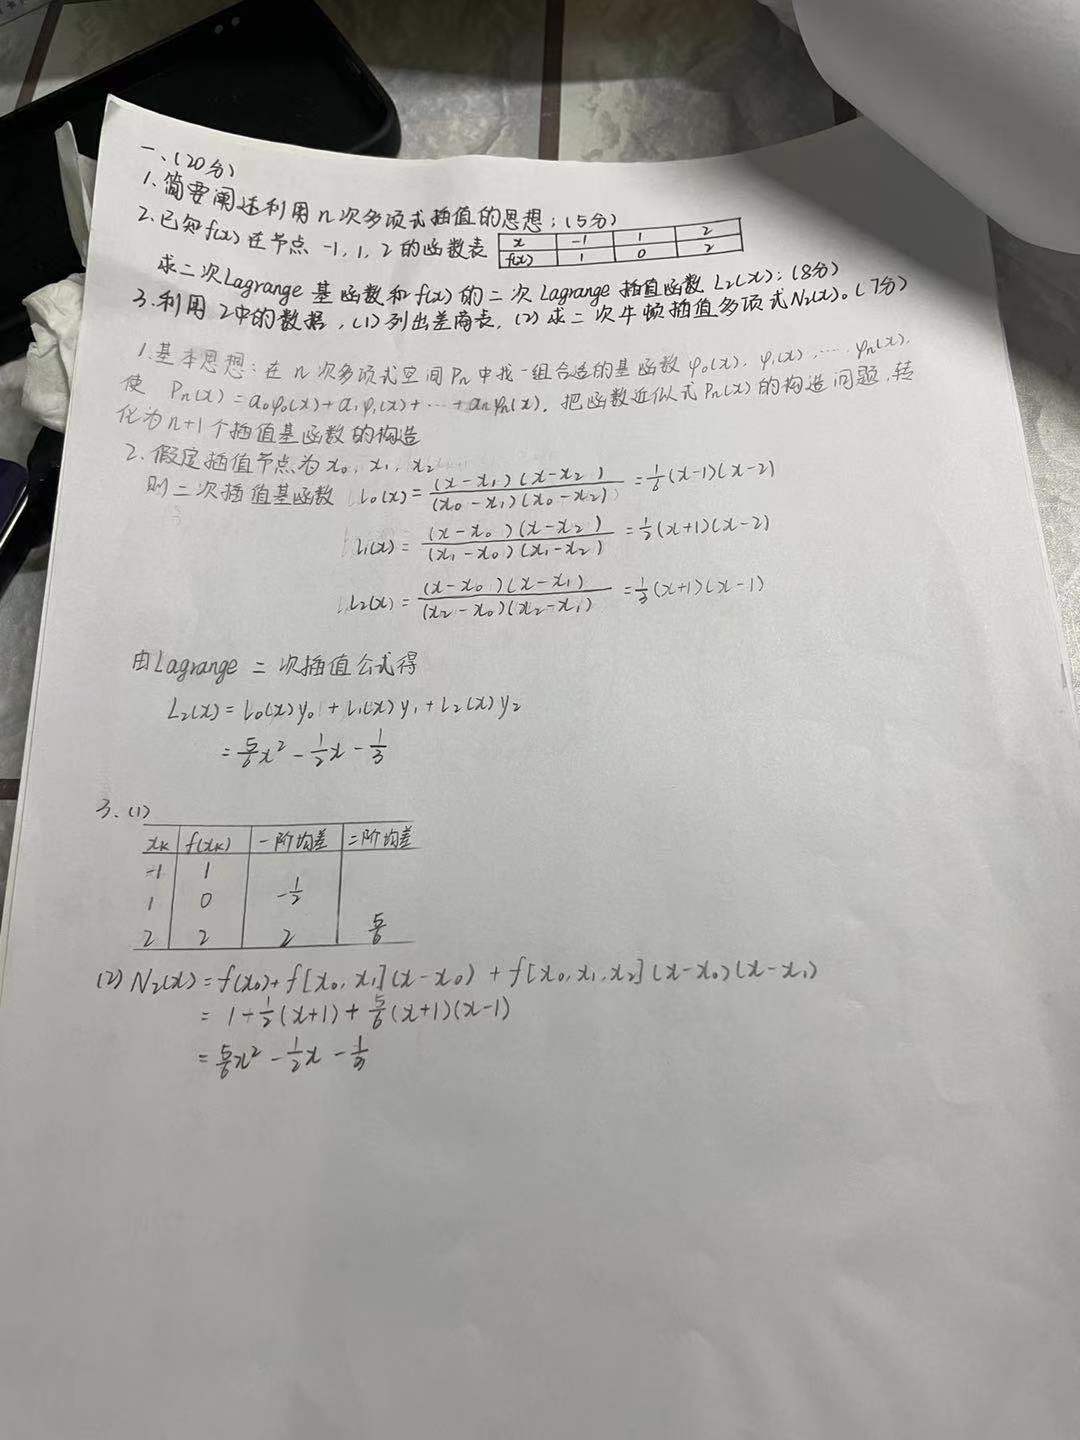 一、(20分)
1.简要阐述利用n次多项式插值的思想；(5分)
2.已知f(x)在节点 -1, 1, 2的函数表
x -1 1 2
f(x) 1 0 2
求二次Lagrange 基函数和f(x)的二次Lagrange 插值函数 L₂(x)；(8分)
3.利用2中的数据，(1)列出差商表，(2)求二次牛顿插值多项式N₂(x)。(7分)
1.基本思想：在n次多项式空间Pn中找一组合适的基函数φ₀(x), φ₁(x), … φn(x),
使 Pn(x)=a₀φ₀(x)+a₁φ₁(x)+…+anφn(x). 把函数近似式Pn(x)的构造问题,转
化为n+1个插值基函数的构造
2.假定插值节点为x₀, x₁, x₂
则二次插值基函数 l₀(x)=(x-x₁)(x-x₂)/(x₀-x₁)(x₀-x₂)=1/6(x-1)(x-2)
l₁(x)=(x-x₀)(x-x₂)/(x₁-x₀)(x₁-x₂)=½(x+1)(x-2)
l₂(x)=(x-x₀)(x-x₁)/(x₂-x₀)(x₂-x₁)=⅓(x+1)(x-1)
由Lagrange 二次插值公式得
L₂(x)=l₀(x)y₀+l₁(x)y₁+l₂(x)y₂
=5/6x²-1/2x-1/3
3.(1)
xk f(xk) 一阶均差 二阶均差
-1 1
1 0 -½
2 2 2 5/6
(2) N₂(x)=f(x₀)+f[x₀,x₁](x-x₀)+f[x₀,x₁,x₂](x-x₀)(x-x₁)
=1-½(x+1)+5/6(x+1)(x-1)
=5/6x²-1/2x-1/3